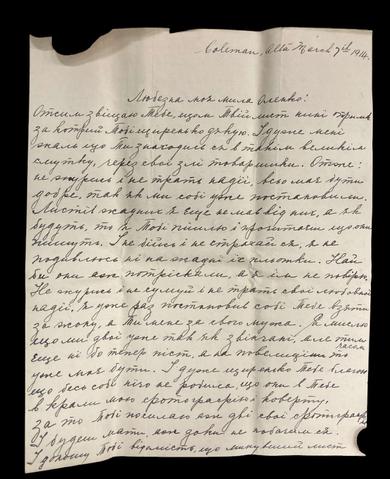 Coleman, Alta March 7th 1914.
Любезна моя мила Оленко:
Отсим звіщаю Тебе, щом Твій лист нині
за котрий Тобі щиренько дякую. І дуже мені
жаль що Ти знаходись ся в такім великім
смутку, через свої злі товаришки. Отже:
не журись і не трать надії, все має бути
добре, так як ми собі уже постановили.
Листів жадних я еще не мав від них, а як
будуть, то я Тобі пішлю і прочитаєш що они
пишуть. І не бійсь і не страхай ся, я не
подивлюсь ні на жадні їс плотки. Най
би они аж потріскали, а я їм не повірю.
Не журись і не сумуй і не трать своєї любової
надії, я уже раз постановив собі Тебе взяти
за жону, а Ти мене за свого мужа. Я мислю
що ми двоє уже так як звінчані, але тілько
часом
еще ні бо тепер піст, а на
уже має бути. І дуже щиренько Тебе благаю
що бесь собі нічо не робила, що они в Тебе
вкрали мою фотографію і коверту,
за то Тобі посилаю аж дві свої фотографії
І будеш мати аж доки не побачим ся
І доношу Тобі відомість, що минувший лист